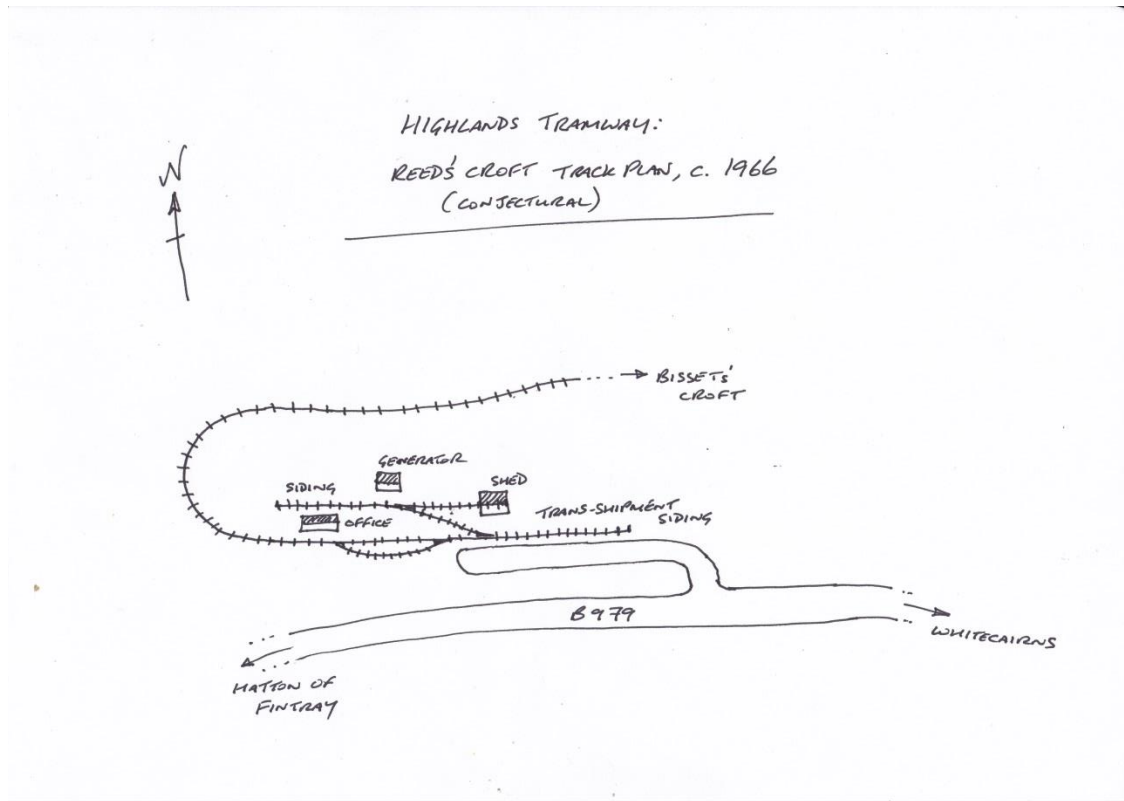 HIGHLANDS TRAMWAY:
REED'S CROFT TRACK PLAN, C. 1966
(CONJECTURAL)
N
BISSETS'
CROFT
GENERATOR
SIDING
SHED
OFFICE
TRANS-SHIPMENT
SIDING
B979
WHITECAIRNS
HATTON OF
FINTRAY